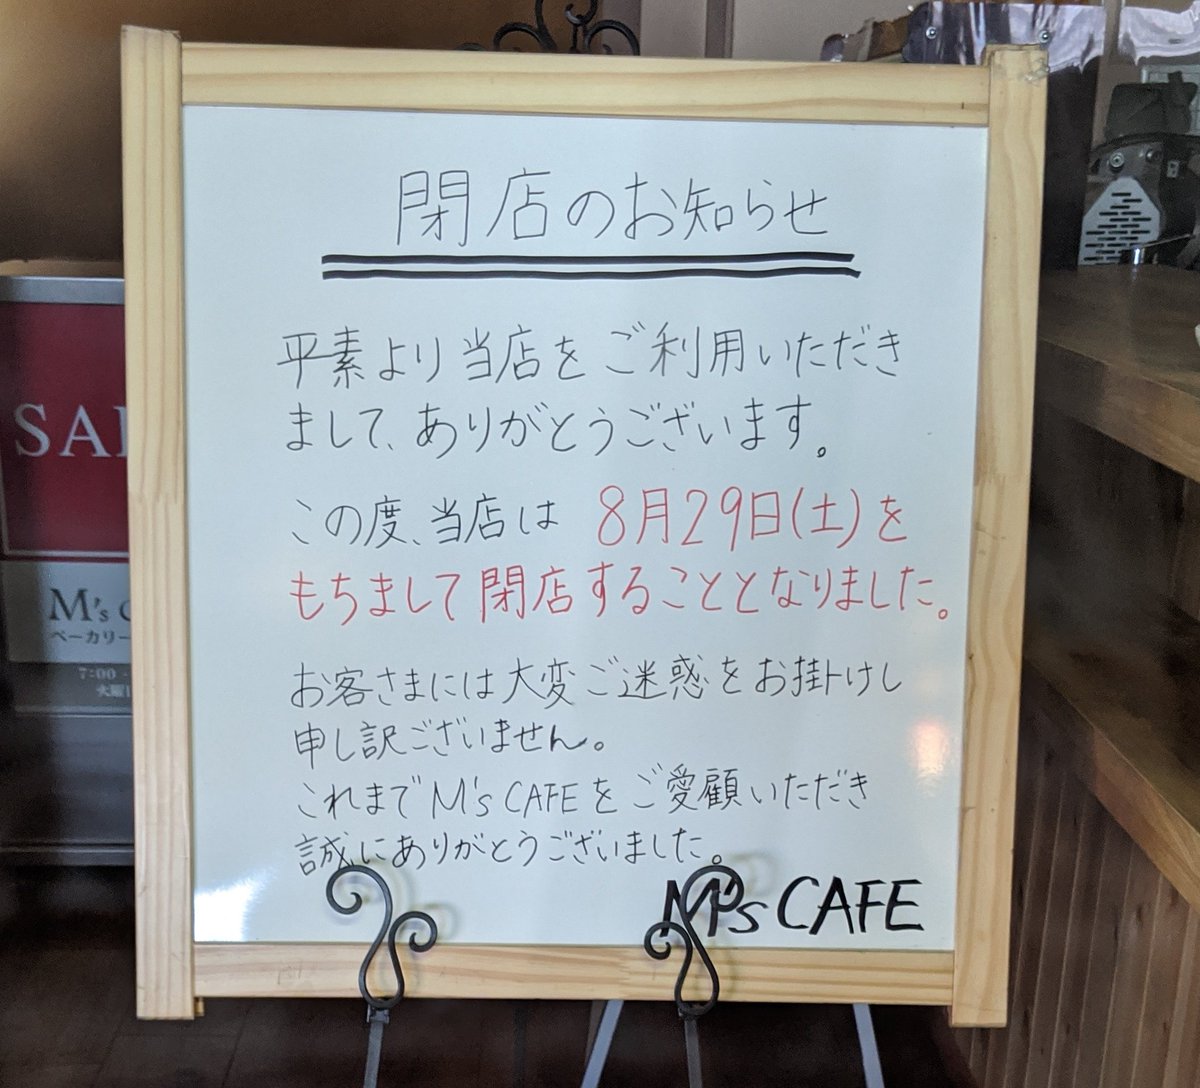 閉店のお知らせ
平素より当店をご利用いただき
まして、ありがとうございます。
この度、当店は 8月29日(土)を
もちまして閉店することとなりました。
お客さまには大変ご迷惑をお掛けし
申し訳ございません。
これまでM's CAFEをご愛顧いただき
誠にありがとうございました。
M's CAFE
M's
ベーカリー
7:00
火曜日